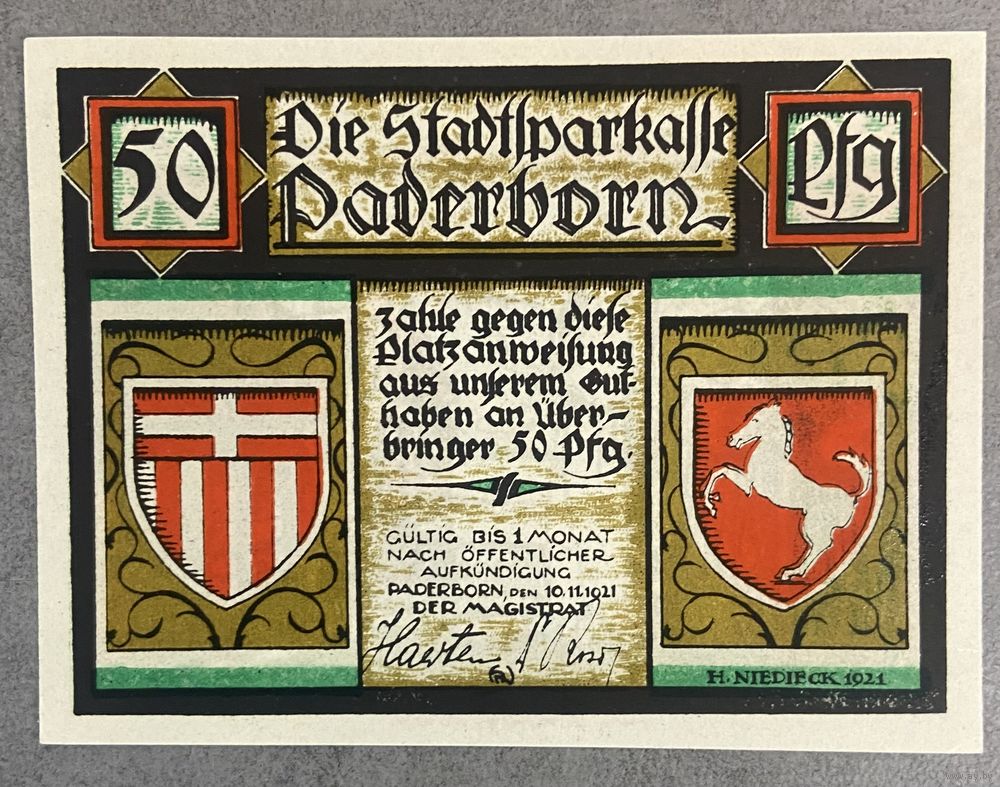 50
Die Stadtsparkasse
Paderborn
Pfg
Zahle gegen diese
Platzanweisung
aus unserem Gut-
haben an Über-
bringer 50 Pfg.
GÜLTIG BIS 1 MONAT
NACH ÖFFENTLICHER
AUFKÜNDIGUNG
PADERBORN, DEN 10.11.1921
DER MAGISTRAT
Haerten
H. NIEDIECK 1921
www.ay.by